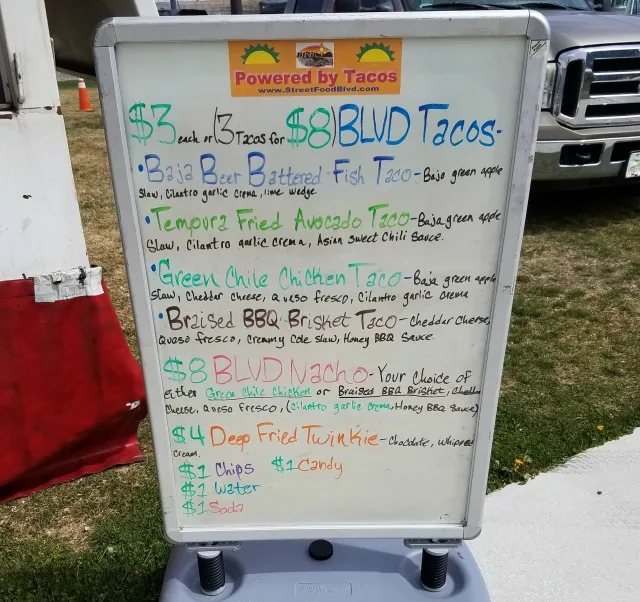 Powered by Tacos
www.StreetFoodBlvd.com
$3 each or (3 Tacos for $8) BLVD Tacos-
• Baja Beer Battered Fish Taco - Baja green apple
slaw, Cilantro garlic crema, lime wedge.
• Tempura Fried Avocado Taco - Baja green apple
Slaw, Cilantro garlic crema, Asian sweet Chili sauce.
• Green Chile Chicken Taco - Baja green apple
slaw, Cheddar cheese, Queso fresco, Cilantro garlic crema
• Braised BBQ Brisket Taco - cheddar cheese,
Queso fresco, Creamy Cole slaw, Honey BBQ Sauce.
$8 BLVD Nacho - Your Choice of
either Green Chile Chicken or Braised BBQ Brisket, Cheddar
Cheese, Queso Fresco, (Cilantro garlic crema, Honey BBQ Sauce)
$4 Deep Fried Twinkie - Chocolate, whipped
cream.
$1 Chips $1 Candy
$1 Water
$1 Soda